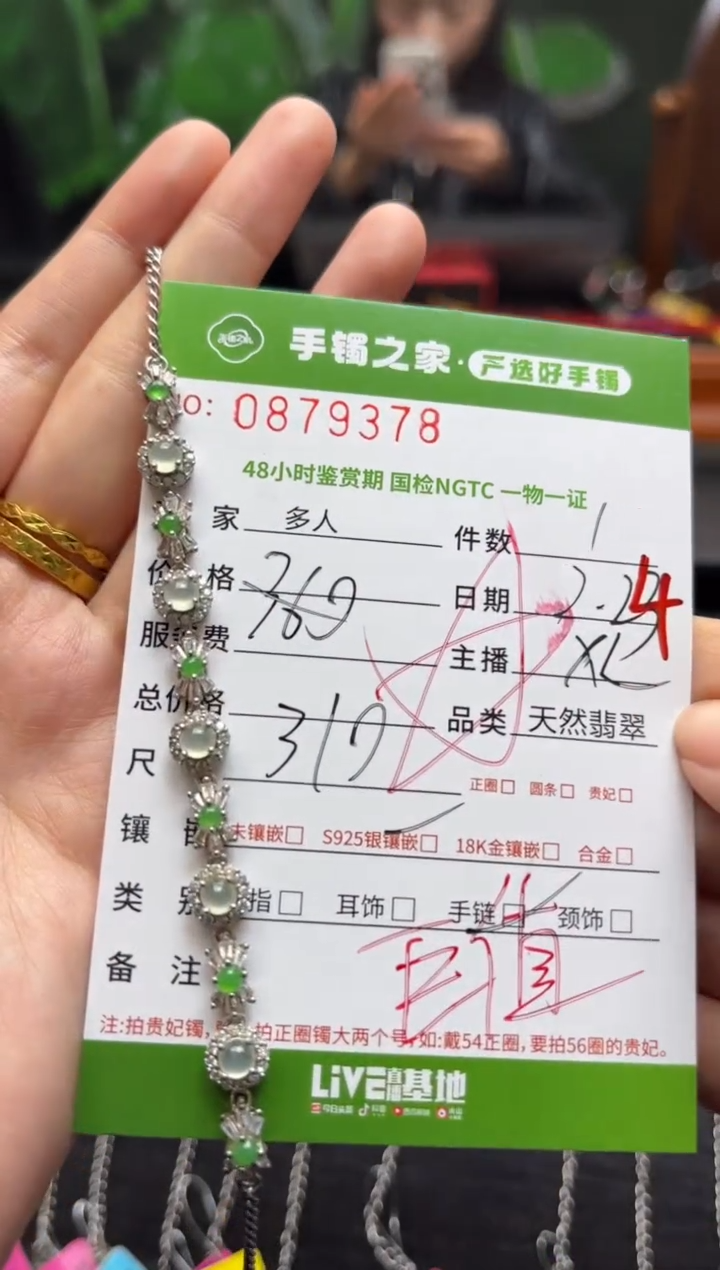 手镯之家·严选好手镯
No: 0879378
48小时鉴赏期 国检NGTC 一物一证
家 多人 件数 1
价 格 369 日期 2.25 4
服 费 主播 XL
总价格 310 品类 天然翡翠
尺
正圈□ 圆条□ 贵妃□
镶 未镶嵌□ S925银镶嵌□ 18K金镶嵌□ 合金□
类 别 指□ 耳饰□ 手链□ 颈饰□
备 注
注:拍贵妃镯, 拍正圈镯大两个号,如:戴54正圈,要拍56圈的贵妃。
LiVE直播基地
今日头条 抖音